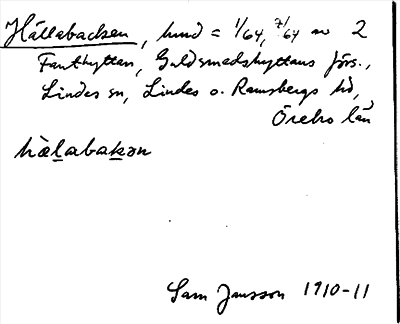 Hällabacken, hmd = 1/64, 7/64 av 2
Fanthyttan, Guldsmedshyttans förs.,
Lindes sn, Lindes o. Ramsbergs hd,
Örebro län
hälabakən
Sam Jansson 1910-11